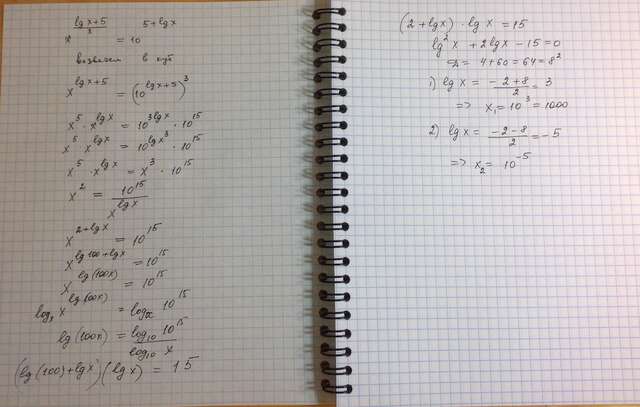 x^((lg x+5)/3) = 10^(5+lg x)
возведем в куб
x^(lg x+5) = (10^(lg x+5))^3
x^5 · x^(lg x) = 10^(3lg x) · 10^15
x^5 · x^(lg x) = 10^(lg x^3) · 10^15
x^5 · x^(lg x) = x^3 · 10^15
x^2 = 10^15 / x^(lg x)
x^(2+lg x) = 10^15
x^(lg 100+lg x) = 10^15
x^(lg(100x)) = 10^15
log_x x^(lg(100x)) = log_x 10^15
lg(100x) = log_10 10^15 / log_10 x
(lg(100)+lg x)(lg x) = 15
(2+lg x) · lg x = 15
lg^2 x + 2lg x - 15=0
D = 4+60=64=8^2
1) lg x = (-2+8)/2 = 3
=> x_1=10^3=1000
2) lg x = (-2-8)/2 = -5
=> x_2= 10^-5